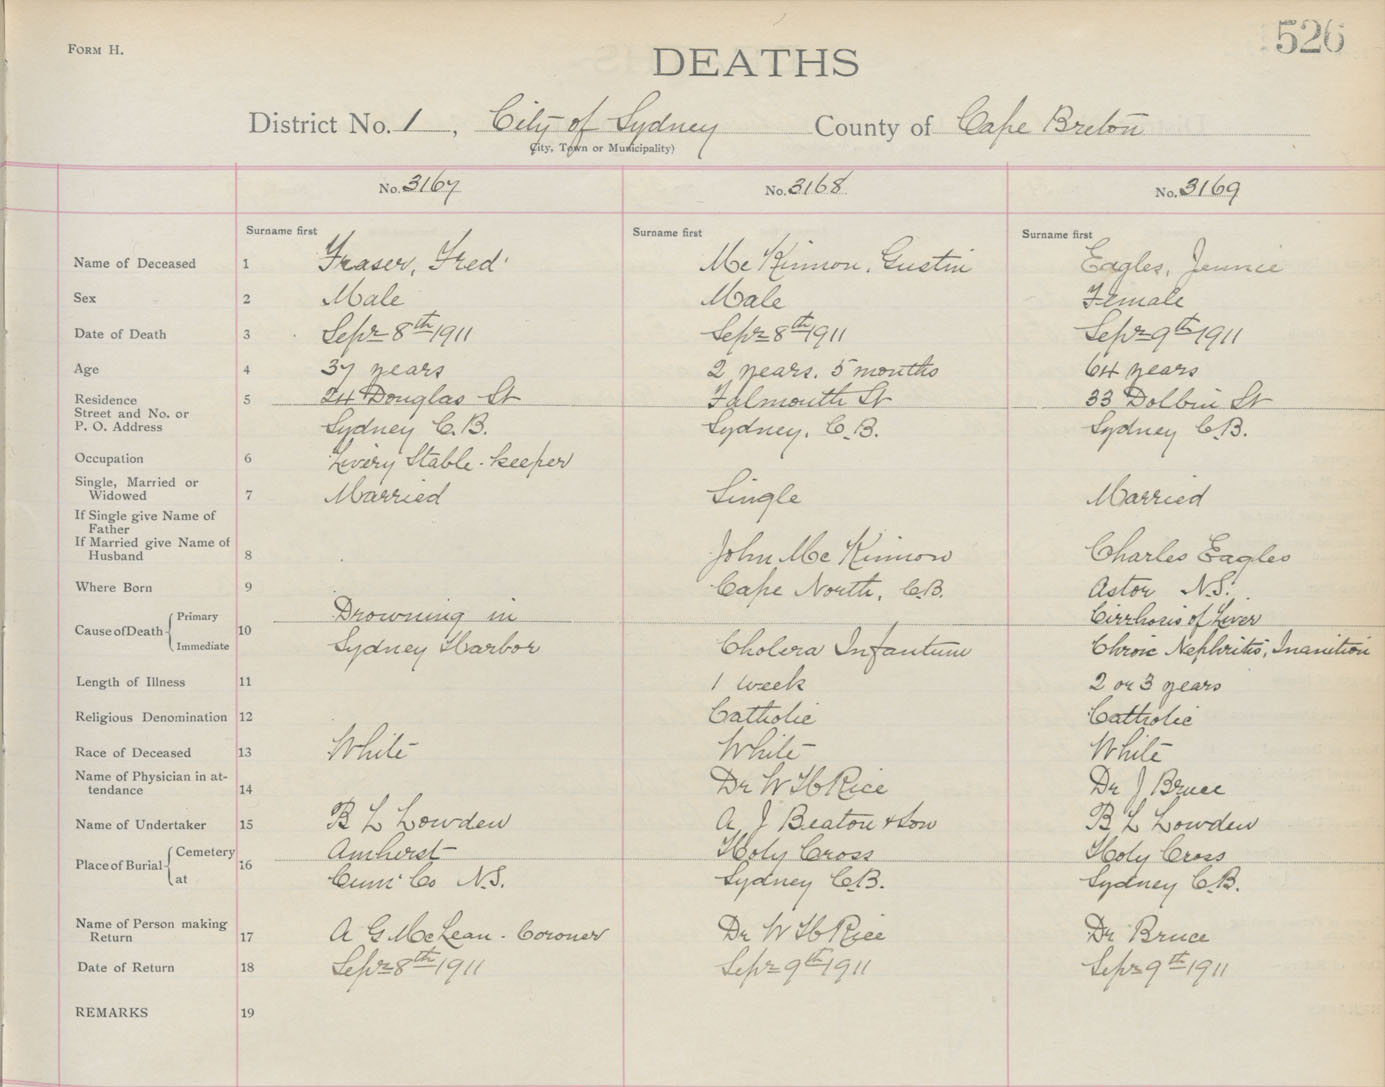 FORM H.
526
DEATHS
District No. 1, City of Sydney County of Cape Breton
(City, Town or Municipality)
No. 3167 No. 3168 No. 3169
Surname first Surname first Surname first
Name of Deceased 1 Fraser, Fred. McKinnon, Gustin Eagles, Jennie
Sex 2 Male Male Female
Date of Death 3 Sepr 8th 1911 Sepr 8th 1911 Sepr 9th 1911
Age 4 37 years 2 years. 5 months 64 years
Residence 5 24 Douglas St Falmouth St 33 Dolbin St
Street and No. or
P. O. Address Sydney C.B. Sydney, C.B. Sydney C.B.
Occupation 6 Livery Stable-keeper
Single, Married or
Widowed 7 Married Single Married
If Single give Name of
Father
If Married give Name of
Husband 8 John McKinnon Charles Eagles
Where Born 9 Cape North, C.B. Astor N.S.
Cause of Death Primary 10 Drowning in Cirrhosis of Liver
Immediate Sydney Harbor Cholera Infantum Chroic Nephritis, Inanition
Length of Illness 11 1 week 2 or 3 years
Religious Denomination 12 Catholic Catholic
Race of Deceased 13 White White White
Name of Physician in at-
tendance 14 Dr W H Rice Dr J Bruce
Name of Undertaker 15 B L Lowden A J Beaton & Son B L Lowden
Place of Burial Cemetery 16 Amherst Holy Cross Holy Cross
at Cum. Co N.S. Sydney C.B. Sydney C.B.
Name of Person making
Return 17 A G McLean - Coroner Dr W H Rice Dr Bruce
Date of Return 18 Sepr 8th 1911 Sepr 9th 1911 Sepr 9th 1911
REMARKS 19